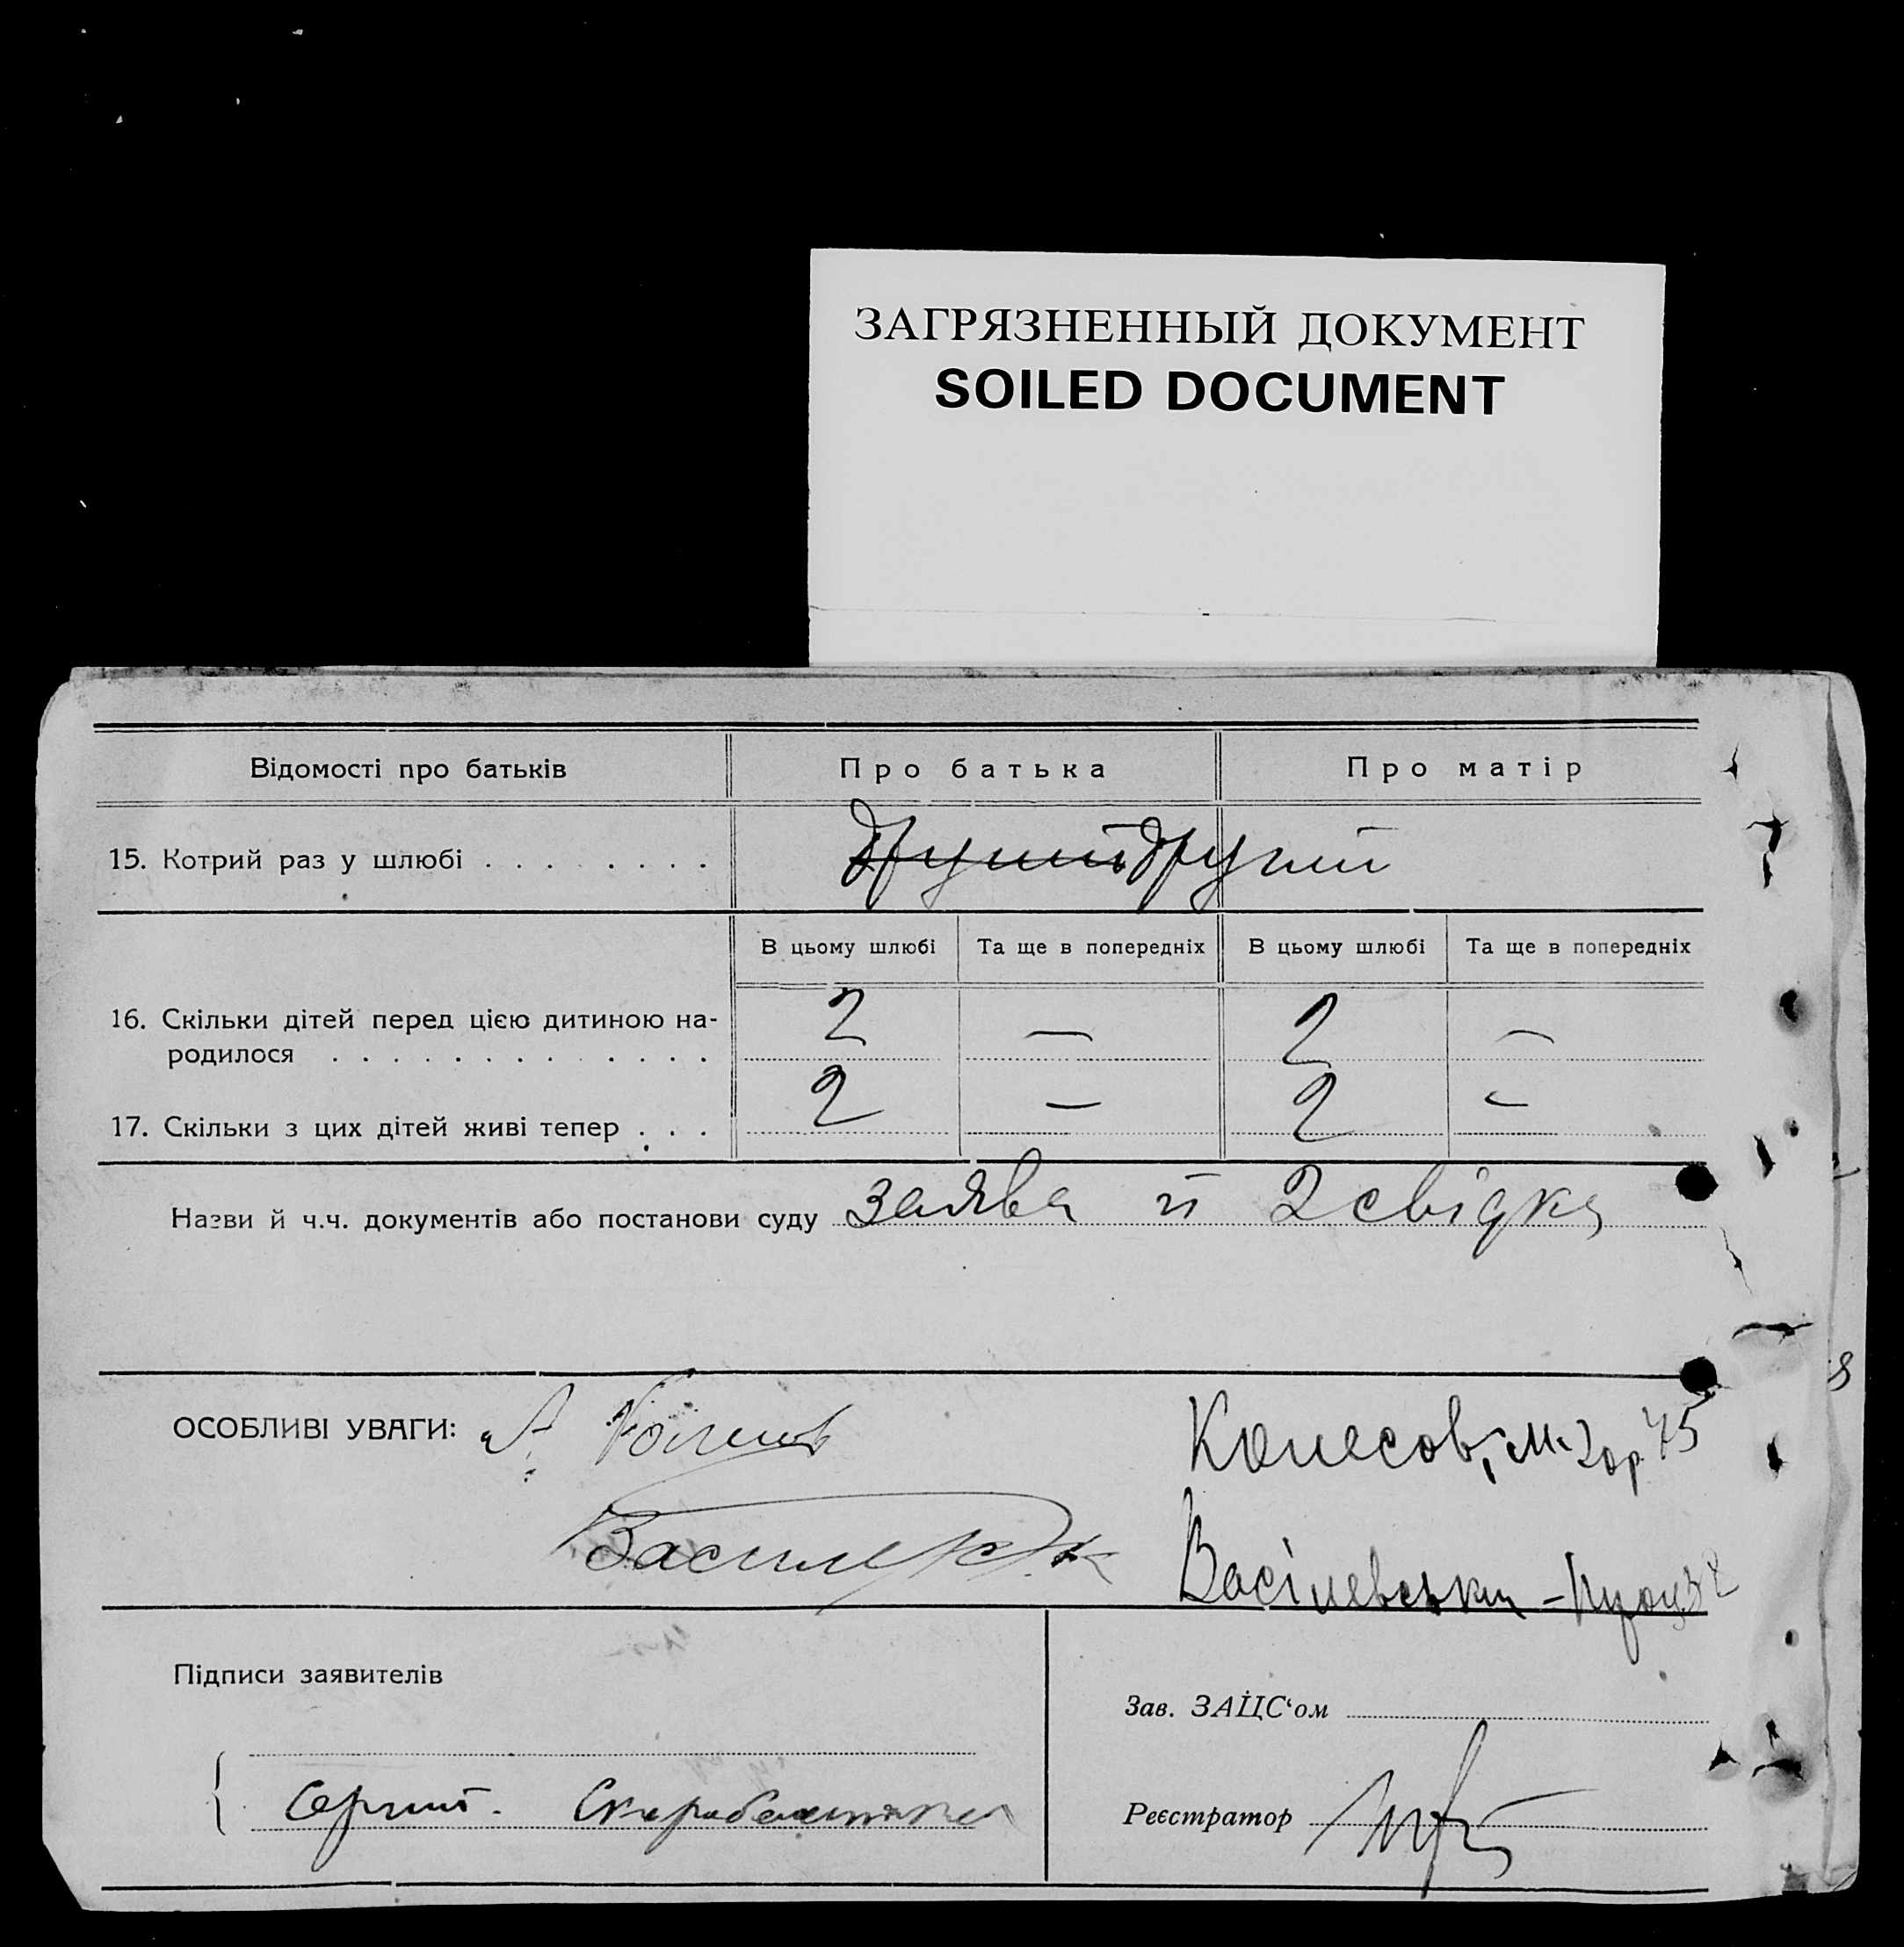 ЗАГРЯЗНЕННЫЙ ДОКУМЕНТ
SOILED DOCUMENT
Відомості про батьків Про батька Про матір
15. Котрий раз у шлюбі . . . . . . . . Другий другий
В цьому шлюбі Та ще в попередніх В цьому шлюбі Та ще в попередніх
16. Скільки дітей перед цією дитиною на-
родилося . . . . . . . . . . . . . 2 — 2 —
17. Скільки з цих дітей живі тепер . . . 2 — 2 —
Назви й ч.ч. документів або постанови суду заява й 2 свідка
ОСОБЛИВІ УВАГИ: А. Колесов, 45
Васілевськи -
Підписи заявителів
Зав. ЗАЦС‘ом
Сергий.
Реєстратор